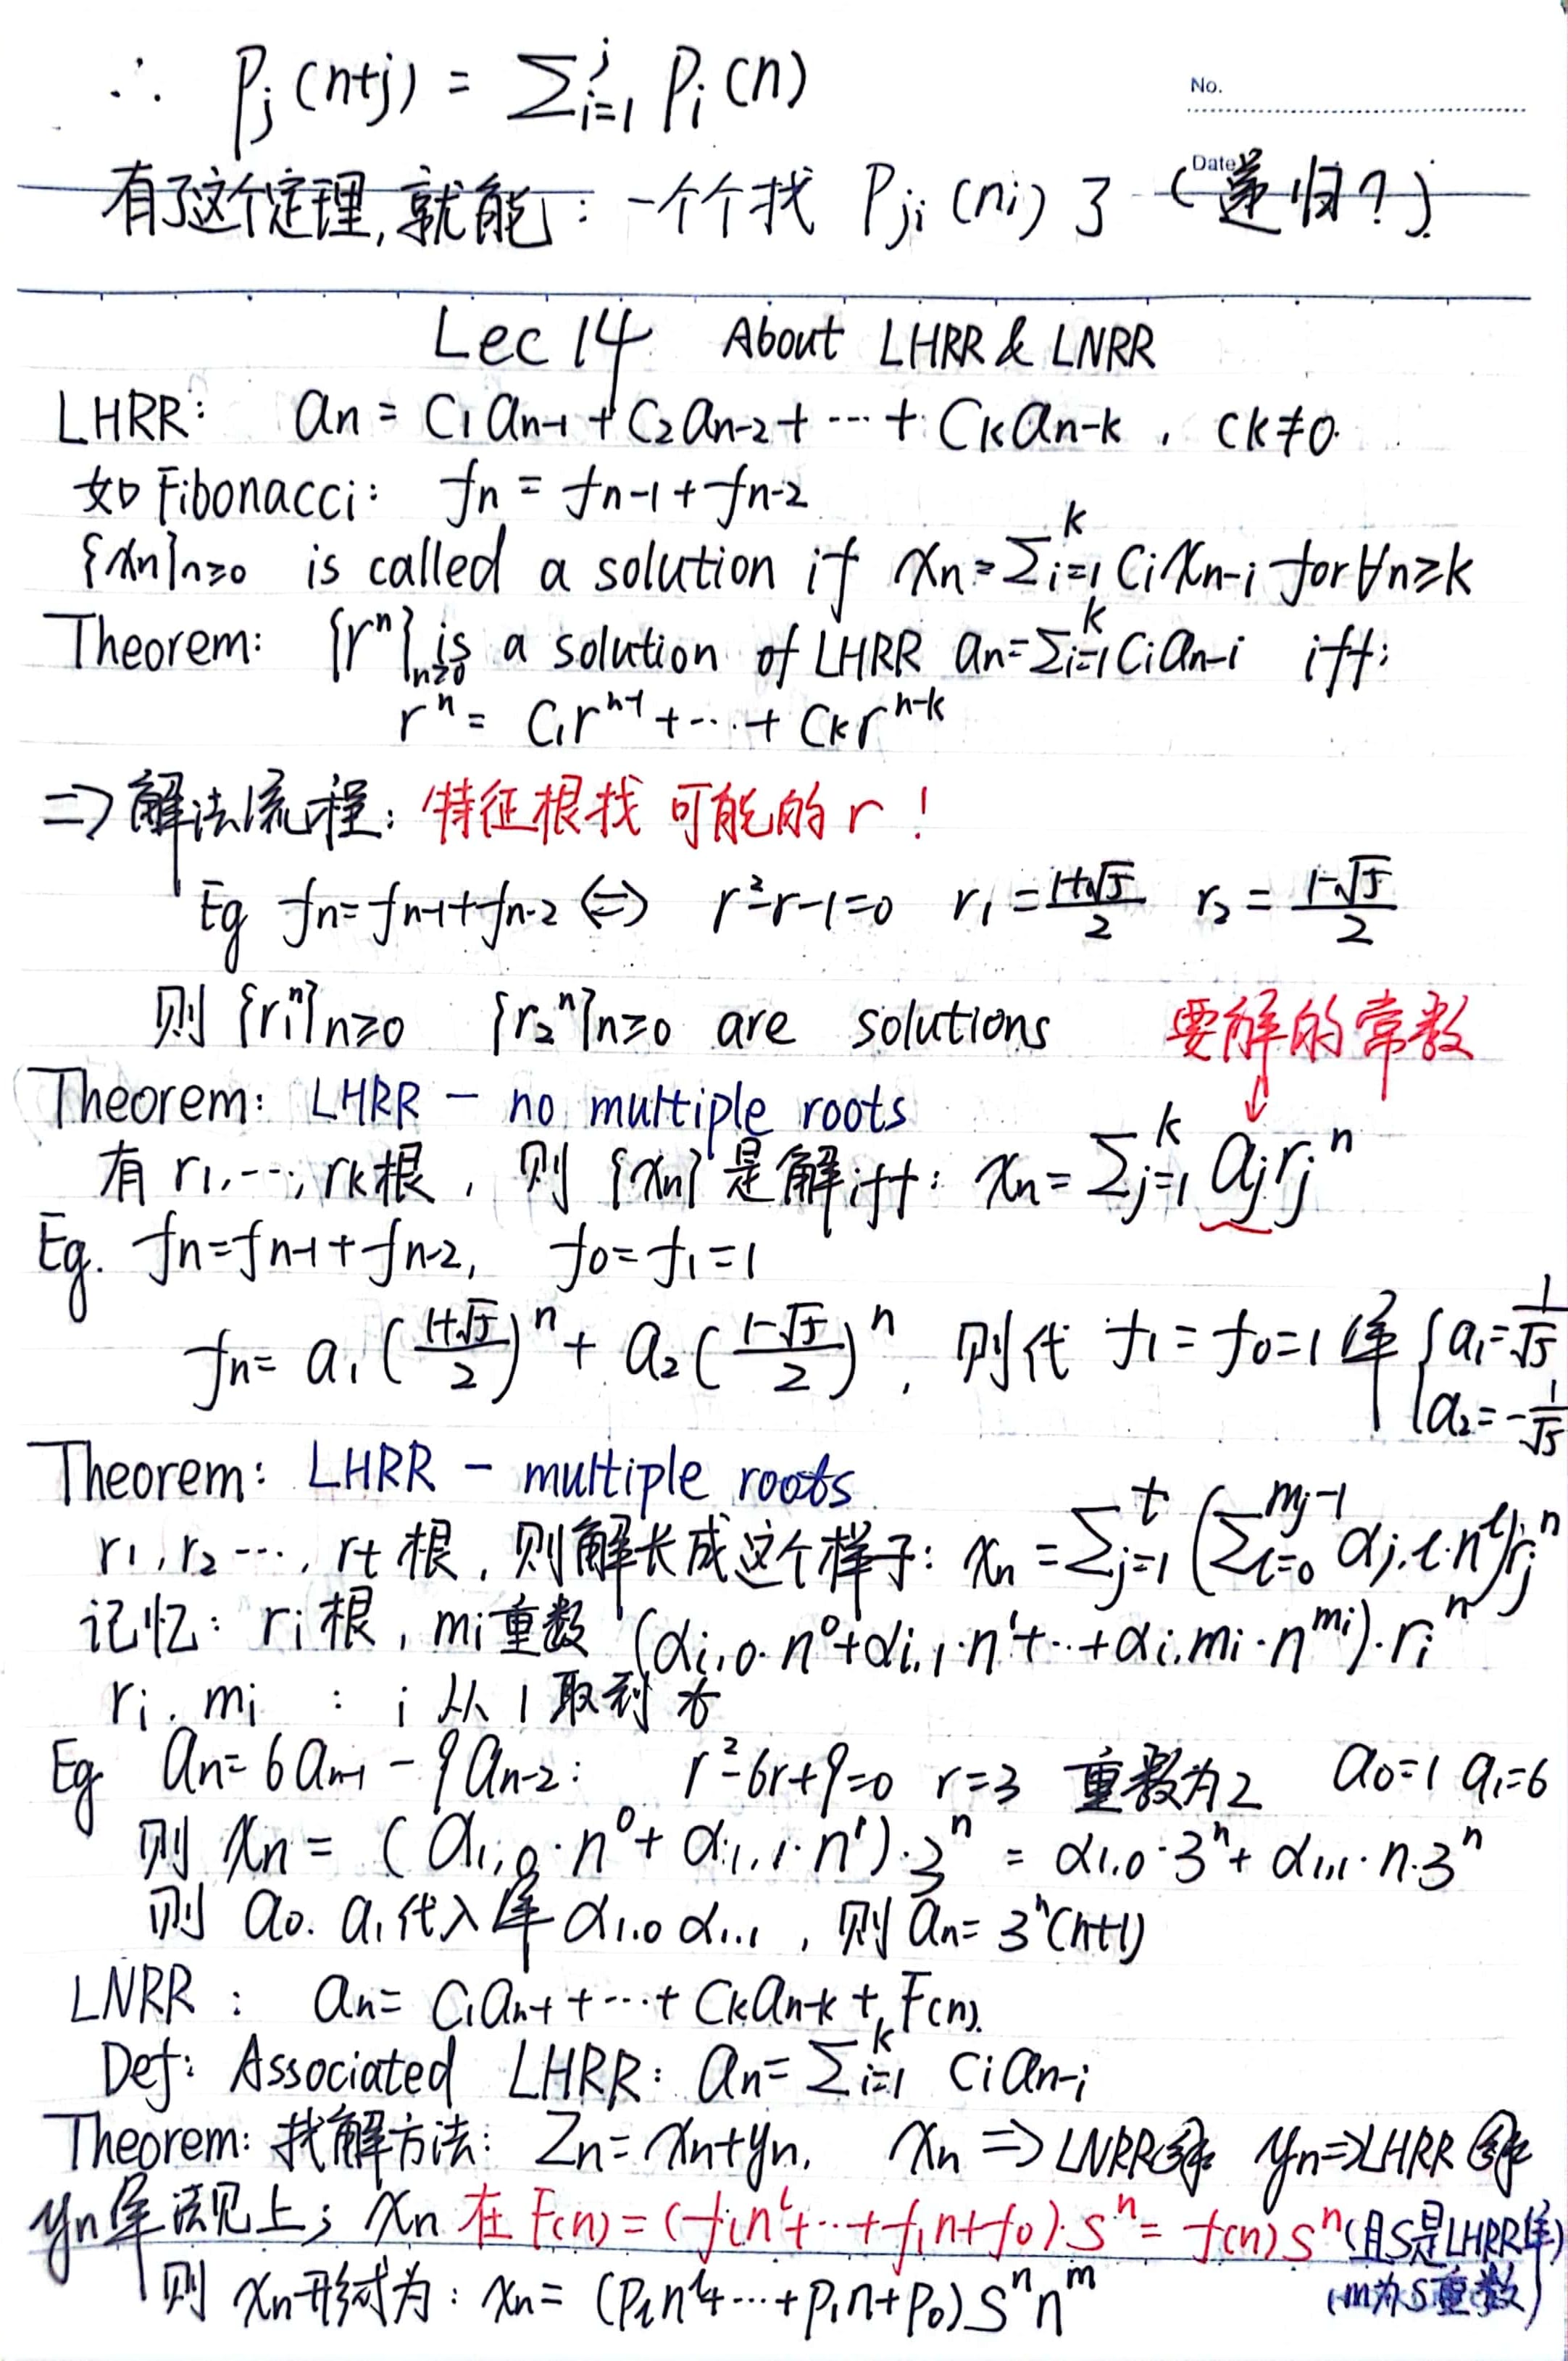 ∴ P_j(n+j) = ∑_{i=1}^{j} P_i(n)
No.
Date
有了这个定理,就能:一个个找 P_{ji}(n_i)了 (递归?)
Lec 14 About LHRR & LNRR
LHRR: a_n = C_1a_{n-1} + C_2a_{n-2} + ⋯ + C_ka_{n-k}, C_k≠0.
如Fibonacci: f_n = f_{n-1} + f_{n-2}
{x_n}_{n≥0} is called a solution if x_n = ∑_{i=1}^{k} C_i x_{n-i} for ∀n≥k
Theorem: {r^n}_{n≥0} is a solution of LHRR a_n = ∑_{i=1}^{k} C_i a_{n-i} iff:
r^n = C_1r^{n-1} + ⋯ + C_kr^{n-k}
⇒ 解法流程: 特征根找 可能的 r !
Eg f_n = f_{n-1} + f_{n-2} ⇔ r^2-r-1=0 r_1 = \frac{1+√5}{2} r_2 = \frac{1-√5}{2}
则 {r_1^n}_{n≥0} {r_2^n}_{n≥0} are solutions 要解的常数
Theorem: LHRR - no multiple roots
有 r_1,⋯,r_k根, 则 {x_n} 是解iff: x_n = ∑_{j=1}^{k} a_j r_j^n
Eg. f_n = f_{n-1} + f_{n-2}, f_0 = f_1 = 1
f_n = a_1(\frac{1+√5}{2})^n + a_2(\frac{1-√5}{2})^n, 则代 f_1 = f_0 = 1 解 {a_1 = \frac{1}{√5}
a_2 = -\frac{1}{√5}
Theorem: LHRR - multiple roots
r_1, r_2 ⋯, r_t 根, 则解长成这个样子: x_n = ∑_{j=1}^{t} (∑_{l=0}^{m_j-1} α_{j,l}·n^l) r_j^n
记忆: r_i根, m_i重数 (α_{i,0}·n^0 + α_{i,1}·n^1 + ⋯ + α_{i,m_i}·n^{m_i})·r_i^n
r_i. m_i : i 从 1 取到 t
Eg a_n = 6a_{n-1} - 9a_{n-2}: r^2-6r+9=0 r=3 重数为2 a_0=1 a_1=6
则 x_n = (α_{1,0}·n^0 + α_{1,1}·n^1)·3^n = α_{1,0}·3^n + α_{1,1}·n·3^n
则 a_0. a_1代入解 α_{1,0} α_{1,1}, 则 a_n = 3^n(n+1)
LNRR : a_n = C_1a_{n-1} + ⋯ + C_ka_{n-k} + F(n).
Def: Associated LHRR: a_n = ∑_{i=1}^{k} C_i a_{n-i}
Theorem: 找解方法: Z_n = x_n + y_n. x_n ⇒ LNRR的解 y_n ⇒ LHRR 的解
y_n解法见上; x_n 在 F(n) = (f_l n^l + ⋯ + f_1n + f_0)·S^n = f(n)S^n (且S是LHRR解)
则 x_n 形式为: x_n = (P_l n^l + ⋯ + P_1n + P_0)S^n n^m (m为S重数)